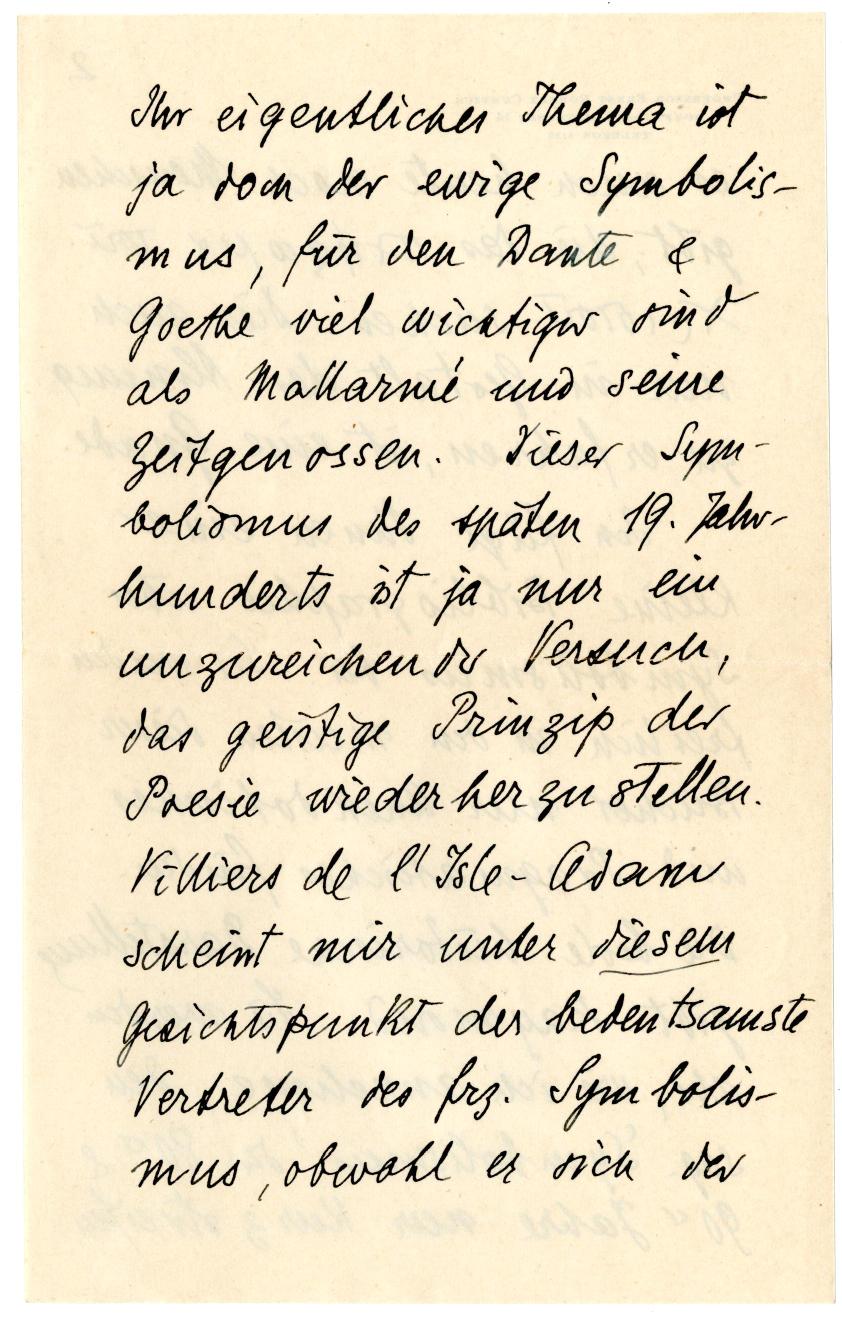 Ihr eigentliches Thema ist
ja doch der ewige Symbolis-
mus, für den Dante &
Goethe viel wichtiger sind
als Mallarmé und seine
Zeitgenossen. Dieser Sym-
bolismus des späten 19. Jahr-
hunderts ist ja nur ein
unzureichender Versuch,
das geistige Prinzip der
Poesie wiederherzustellen.
Villiers de l'Isle-Adam
scheint mir unter diesem
Gesichtspunkt der bedeutsamste
Vertreter des frz. Symbolis-
mus, obwohl er sich der